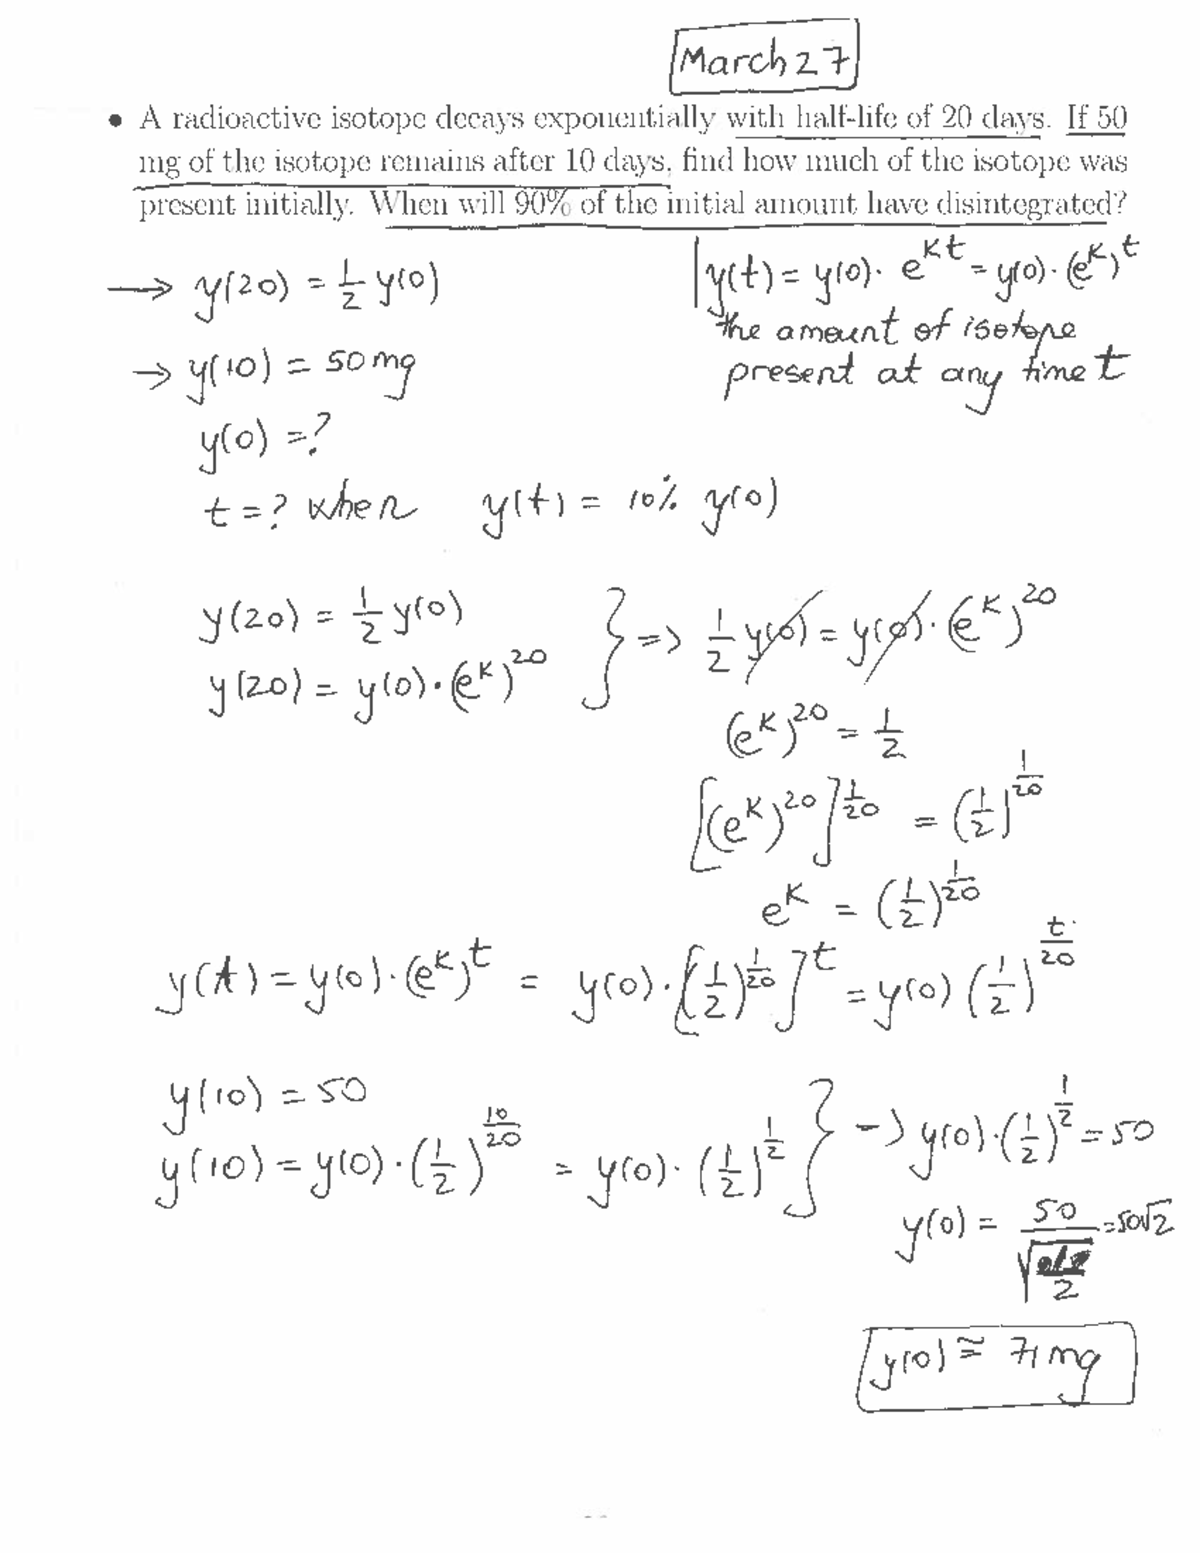 March 27
• A radioactive isotope decays exponentially with half-life of 20 days. If 50
mg of the isotope remains after 10 days, find how much of the isotope was
present initially. When will 90% of the initial amount have disintegrated?
→ y(20) = 1/2 y(0)
| y(t) = y(0) · e^{kt} = y(0) · (e^k)^t
the amount of isotope
present at any time t
→ y(10) = 50 mg
y(0) = ?
t = ? when y(t) = 10% y(0)
y(20) = 1/2 y(0)
y(20) = y(0) · (e^k)^{20}
} => 1/2 y(0) = y(0) · (e^k)^{20}
(e^k)^{20} = 1/2
[(e^k)^{20}]^{1/20} = (1/2)^{1/20}
e^k = (1/2)^{1/20}
y(t) = y(0) · (e^k)^t = y(0) · [(1/2)^{1/20}]^t = y(0) (1/2)^{t/20}
y(10) = 50
y(10) = y(0) · (1/2)^{10/20} = y(0) · (1/2)^{1/2}
} -> y(0) · (1/2)^{1/2} = 50
y(0) = 50/√(/2) = 50√2
y(0) ≅ 71 mg